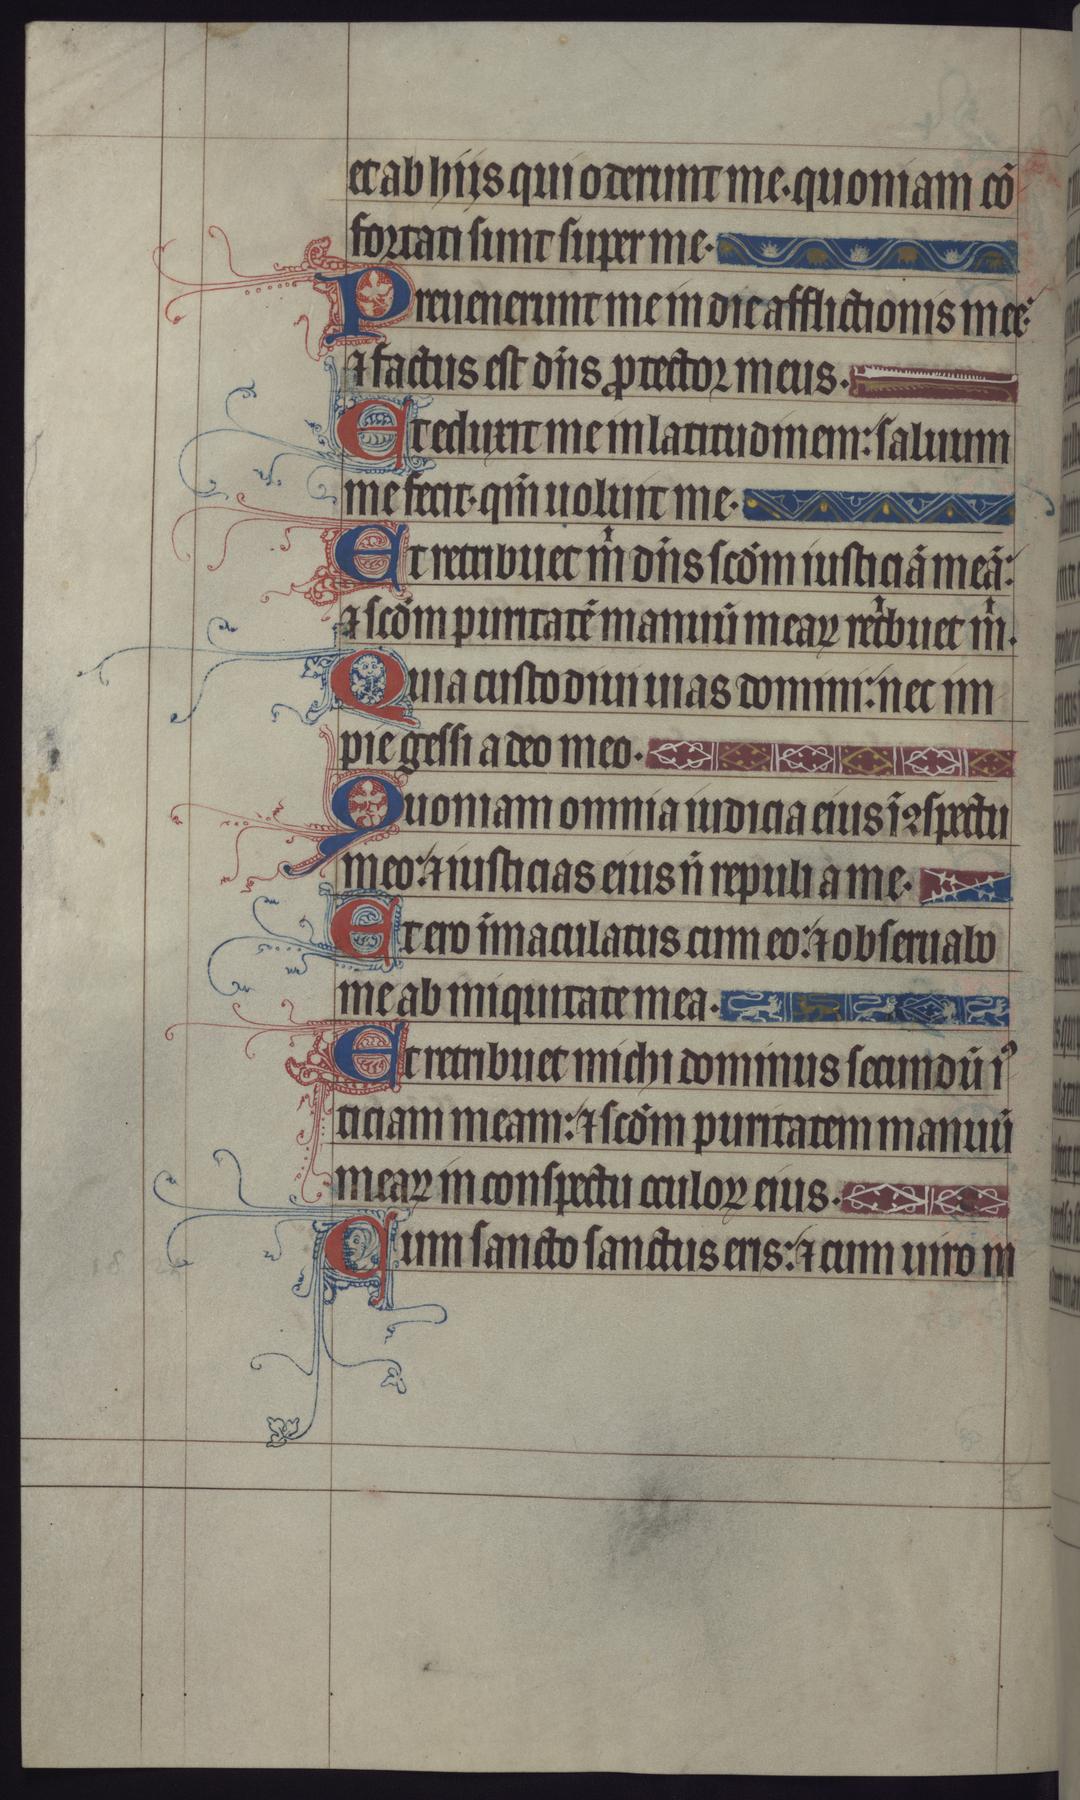 et ab hiis qui oderunt me. quoniam cō
fortati sunt super me.
Preuenerunt me in die afflictionis mee:
⁊ factus est dn̄s ꝓtector meus.
Et eduxit me in latitudinem: saluum
me fecit. qm̄ uoluit me.
Et retribuet m̄ dn̄s scdm̄ iusticiā meā:
⁊ scdm̄ puritatē manuū meaꝝ ret͛buet m̄.
Quia custodiui uias domini: nec im
pie gessi a deo meo.
Quoniam omnia iudicia eius ī ꝯspectu
meo: ⁊ iusticias eius n̄ repuli a me.
Et ero īmaculatus cum eo: ⁊ obseruabo
me ab iniquitate mea.
Et retribuet michi dominus secundū iꝰ
ticiam meam: ⁊ scdm̄ puritatem manuū
meaꝝ in conspectu oculoꝝ eius.
Cum sancto sanctus eris: ⁊ cum uiro in